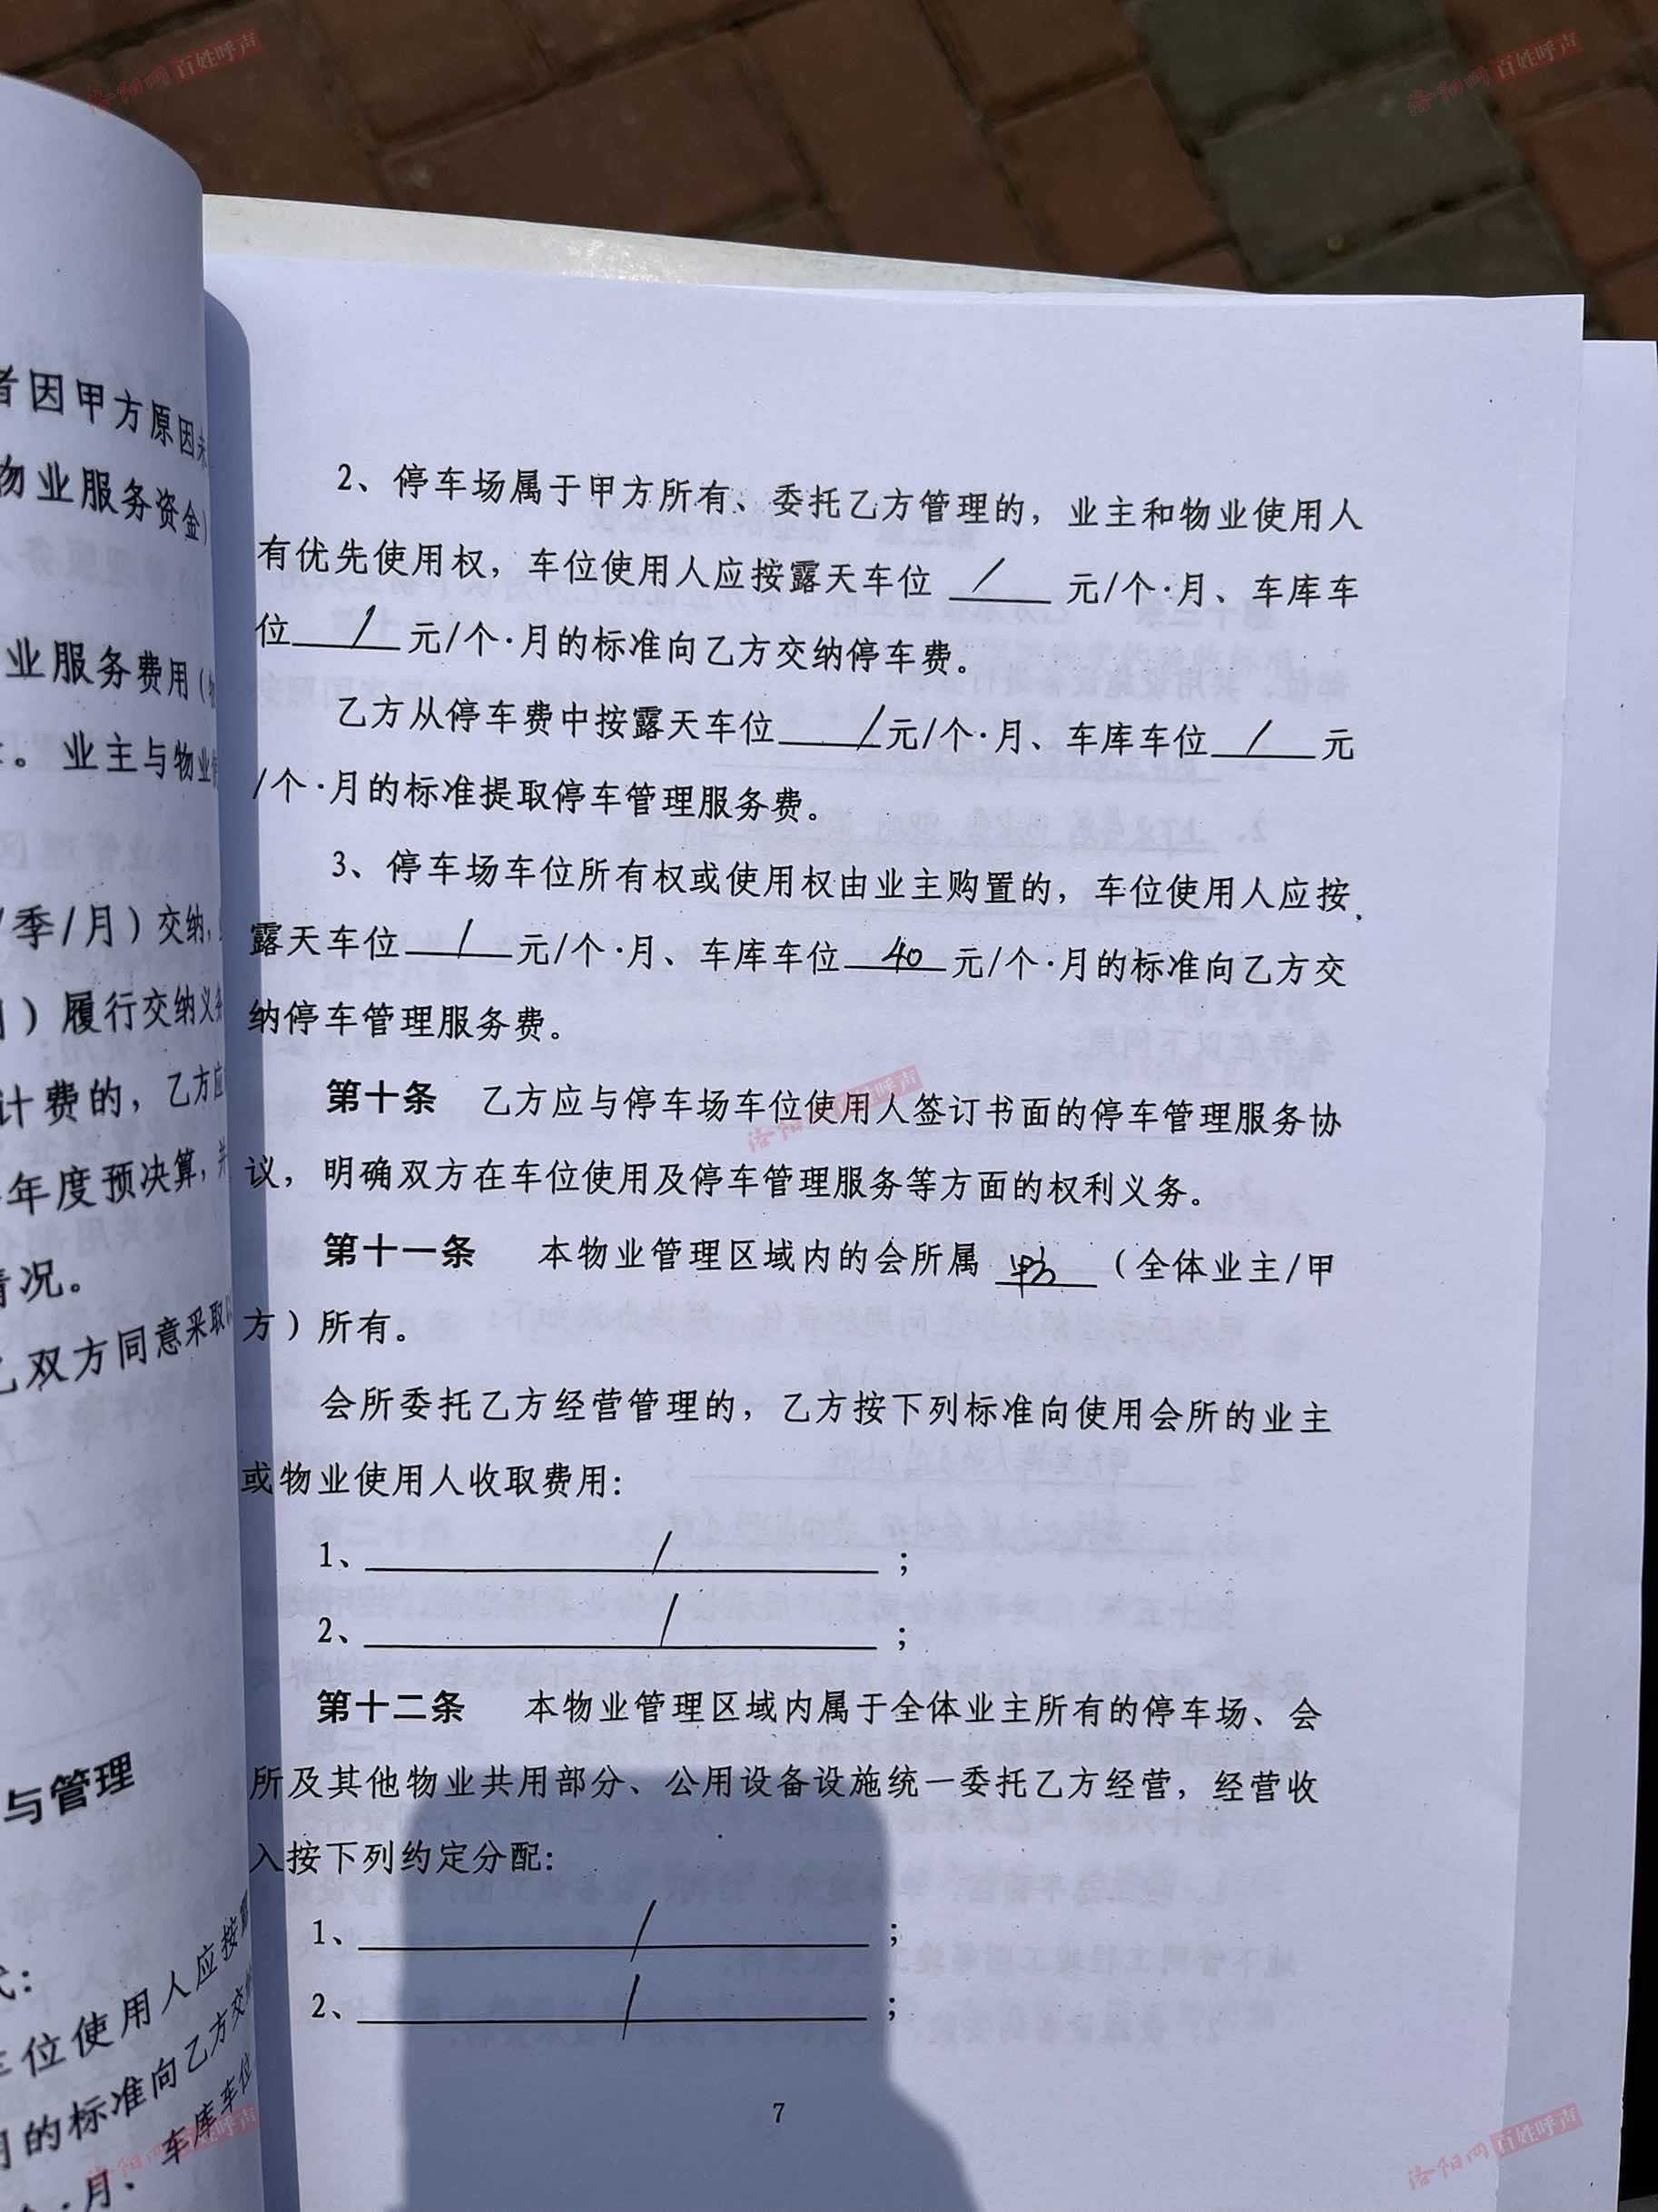 洛阳网百姓呼声
洛阳网百姓呼声
者因甲方原因未
物业服务资金)
业服务费用(
。业主与物业
/季/月)交纳,
)履行交纳义务
计费的,乙方应
年度预决算,并
情况。
乙双方同意采取以
与管理
式:
车位使用人应按露
月的标准向乙方交纳
月、车库车位
2、停车场属于甲方所有、委托乙方管理的,业主和物业使用人
有优先使用权,车位使用人应按露天车位 / 元/个·月、车库车
位 / 元/个·月的标准向乙方交纳停车费。
乙方从停车费中按露天车位 / 元/个·月、车库车位 / 元
/个·月的标准提取停车管理服务费。
3、停车场车位所有权或使用权由业主购置的,车位使用人应按
露天车位 / 元/个·月、车库车位 40 元/个·月的标准向乙方交
纳停车管理服务费。
第十条 乙方应与停车场车位使用人签订书面的停车管理服务协
洛阳网百姓呼声
议,明确双方在车位使用及停车管理服务等方面的权利义务。
第十一条 本物业管理区域内的会所属 甲方 (全体业主/甲
方)所有。
会所委托乙方经营管理的,乙方按下列标准向使用会所的业主
或物业使用人收取费用:
1、 / ;
2、 / ;
第十二条 本物业管理区域内属于全体业主所有的停车场、会
所及其他物业共用部分、公用设备设施统一委托乙方经营,经营收
入按下列约定分配:
1、 / ;
2、 / ;
7
洛阳网百姓呼声
洛阳网百姓呼声